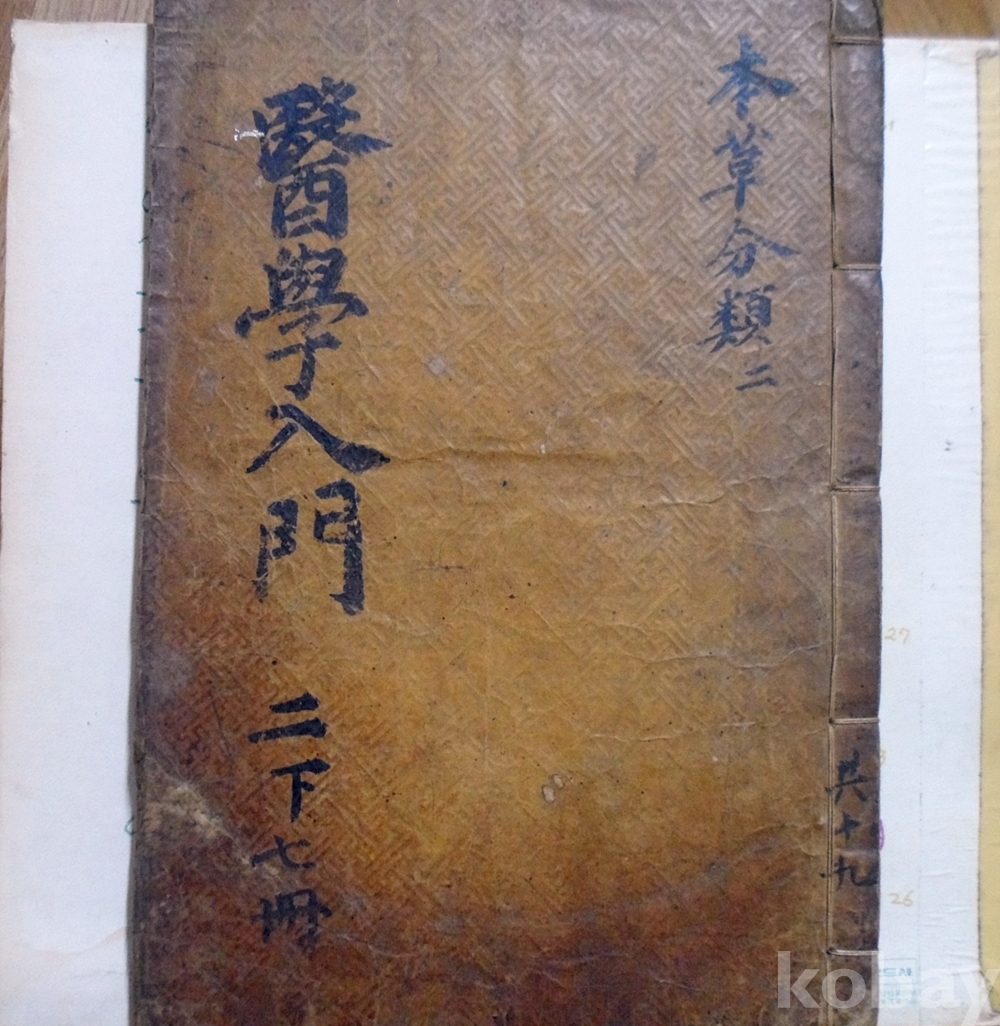 本草分類二
醫學入門 二下七冊
共十九
27
26
kobay